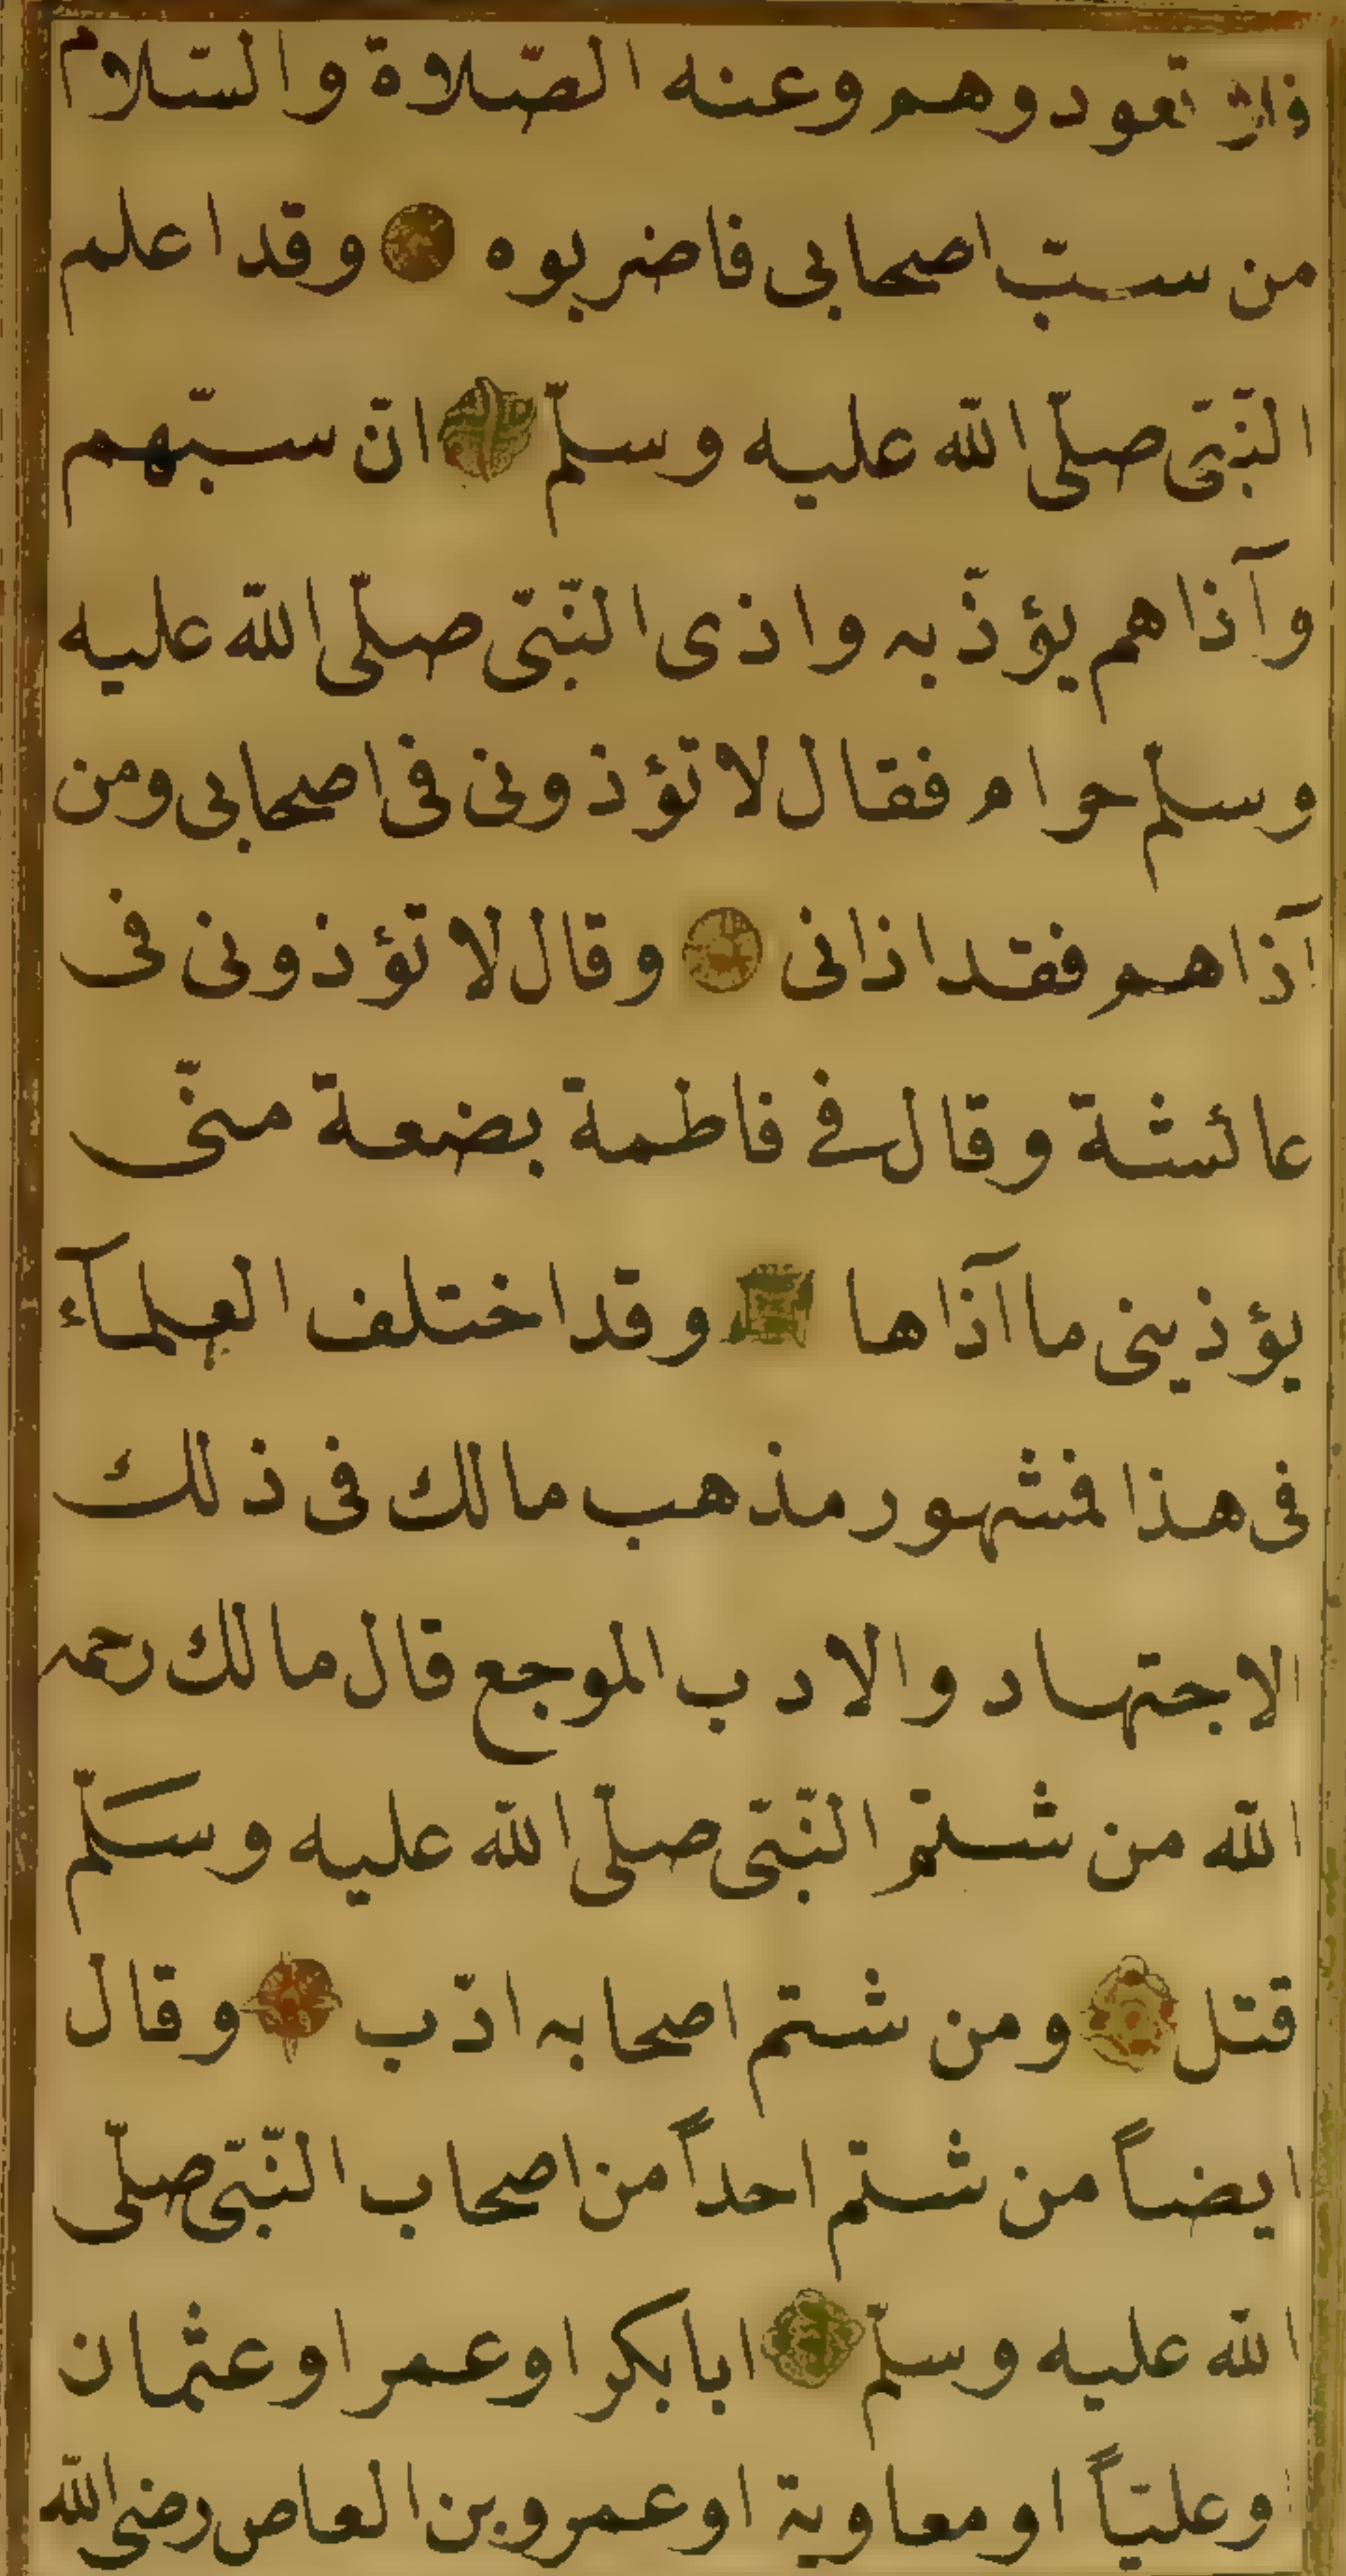 فلا تعودوهم وعنه الصّلاة والسّلام
من سبّ اصحابى فاضربوه وقد اعلم
النّبىّ صلّى الله عليه وسلّم انّ سبّهم
وآذاهم يؤذّيه واذى النّبىّ صلّى الله عليه
وسلّم حرام فقال لا تؤذونى فى اصحابى ومن
آذاهم فقد اذانى وقال لا تؤذونى فى
عائشة وقال فى فاطمة بضعة منّى
يؤذينى ما آذاها وقد اختلف العلمآء
فى هذا فمشهور مذهب مالك فى ذلك
الاجتهاد والادب الموجع قال مالك رحمه
الله من شتم النّبىّ صلّى الله عليه وسَلّم
قتل ومن شتم اصحابه ادّب وقال
ايضاً من شتم احداً من اصحاب النّبىّ صلّى
الله عليه وسلّم ابابكر او عمر او عثمان
وعليّاً او معاوية او عمرو بن العاص رضى الله